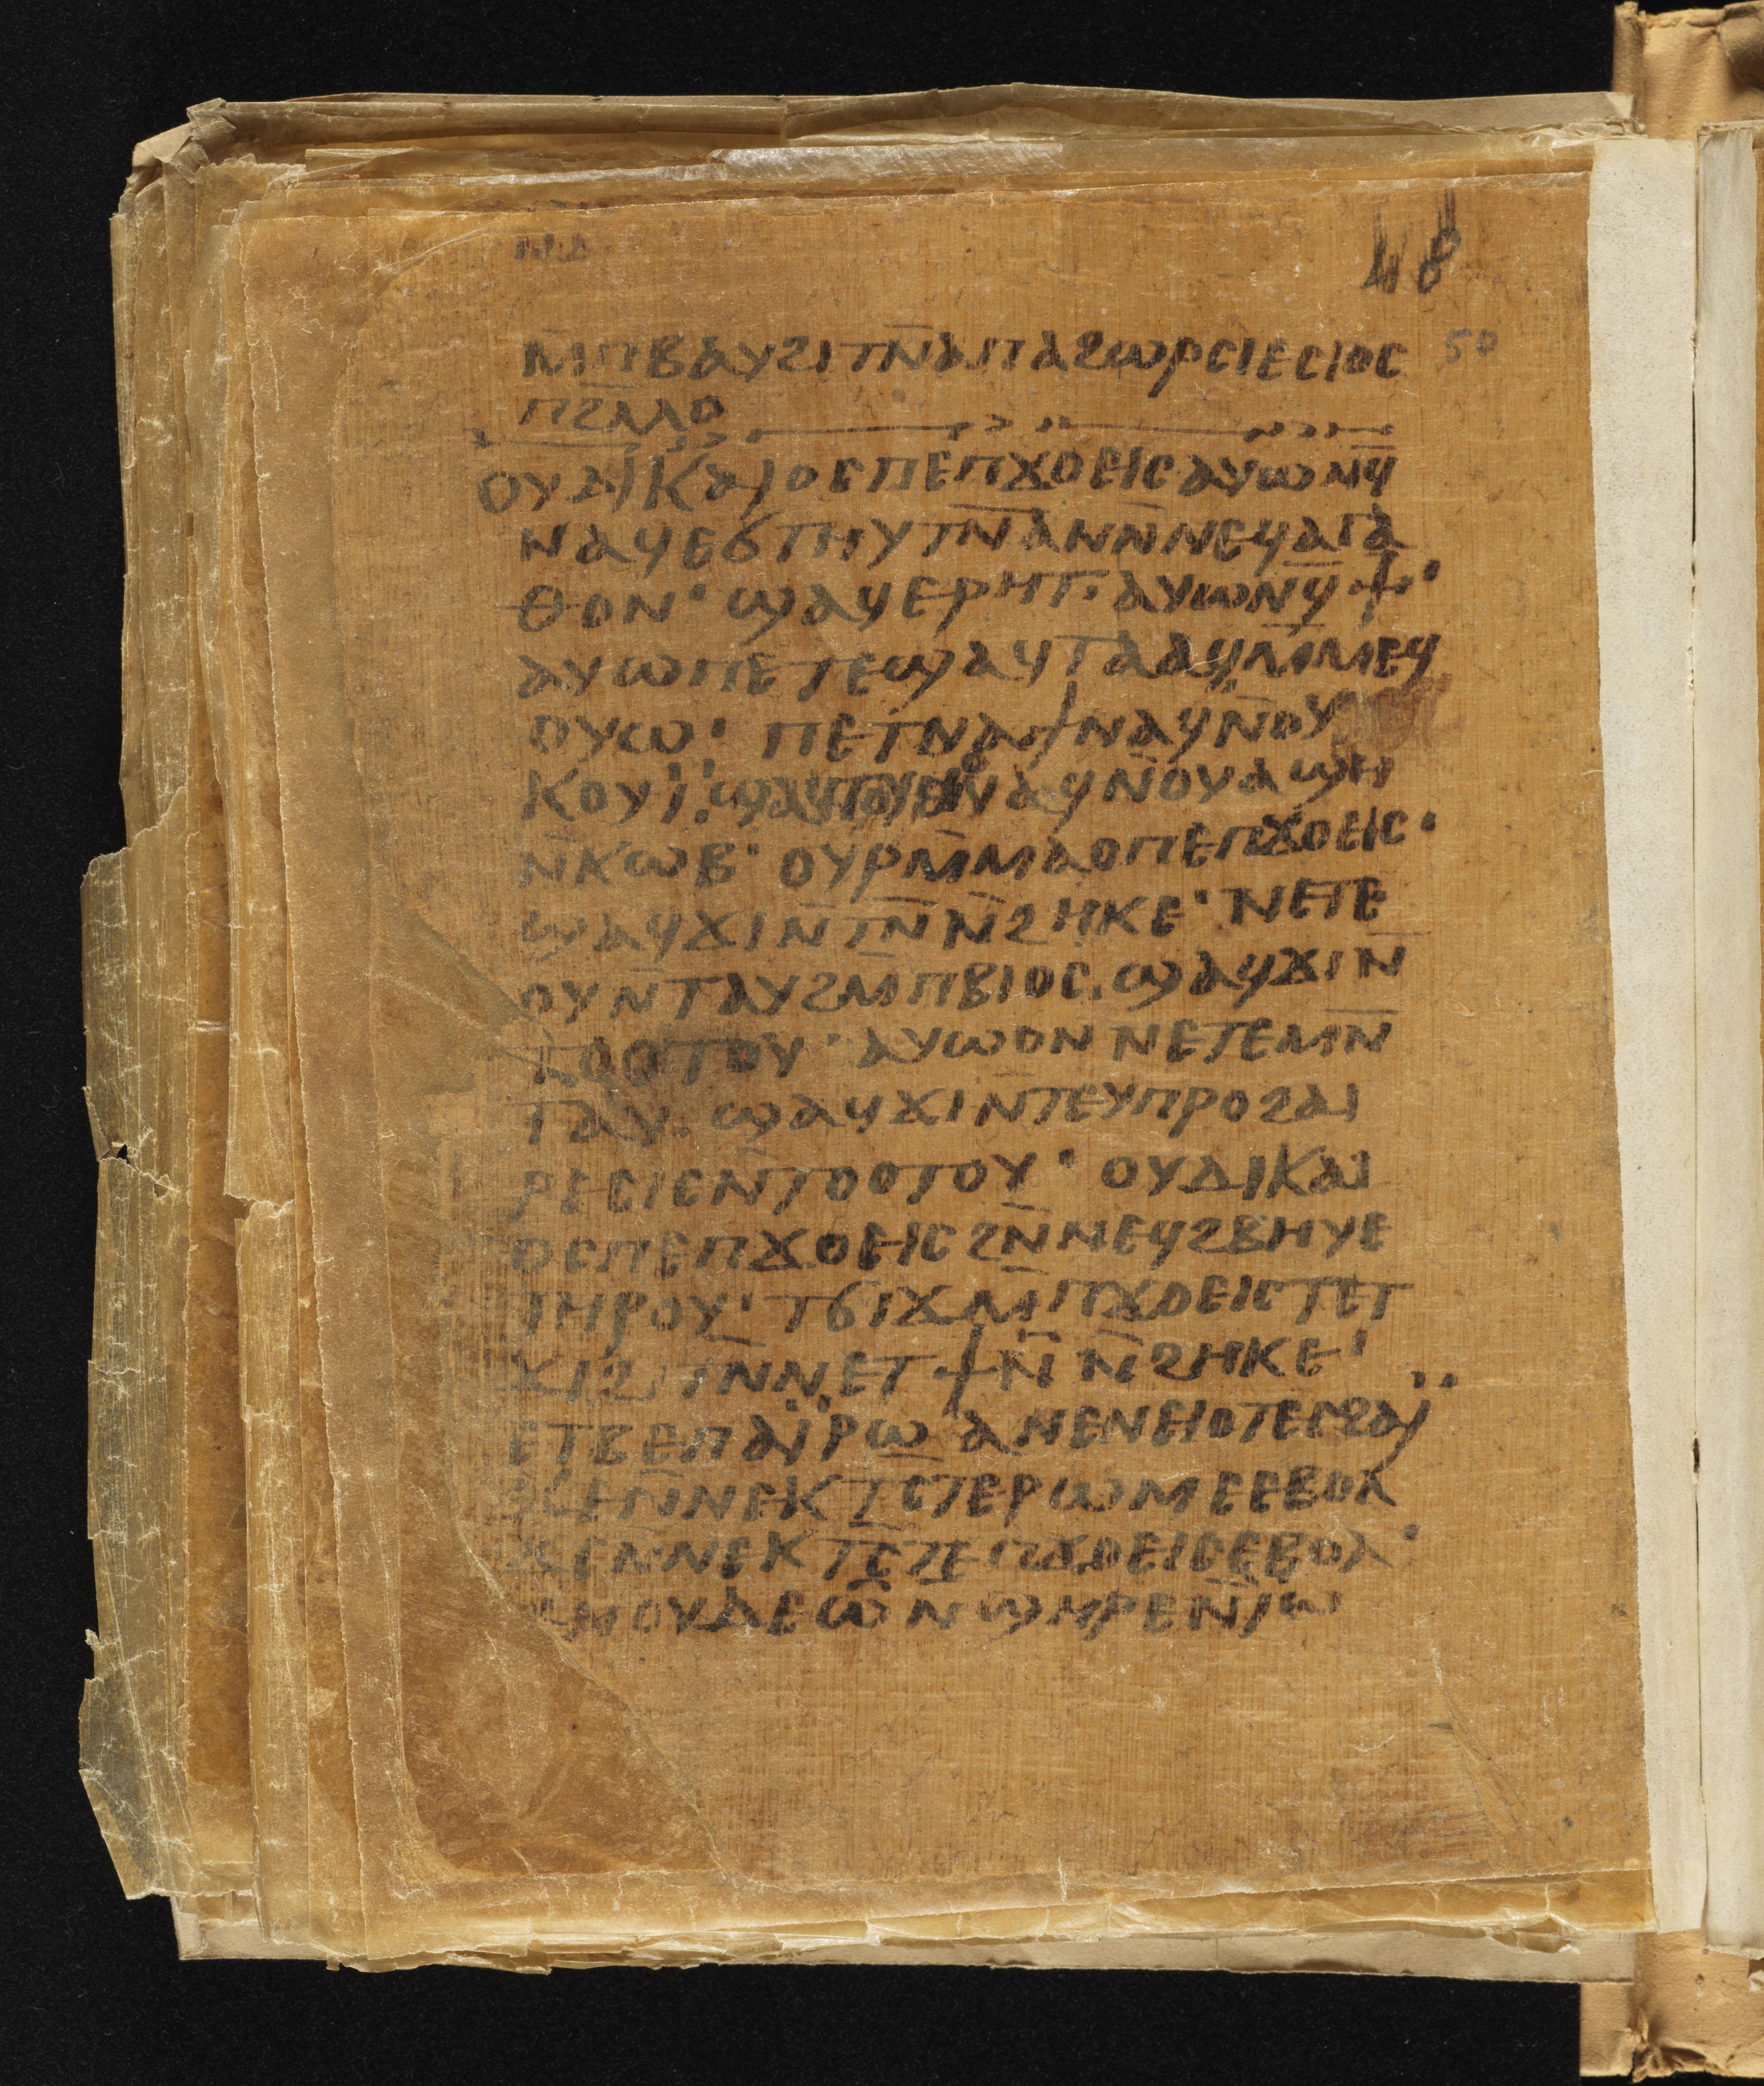 ⲛⲁ
48
50
ⲙⲡⲃⲁⲩϩⲓⲧⲛ̄ⲁⲡⲁϩⲱⲣⲥⲓⲉⲥⲓⲟⲥ
ⲡϩⲗⲗⲟ
ⲟⲩⲇⲓⲕⲁⲓⲟⲥⲡⲉⲡϫⲟⲉⲓⲥⲁⲩⲱⲛϥ̄
ⲛⲁϥⲉϭⲧⲏⲩⲧⲛ̄ⲁⲛⲛ̄ⲛⲉϥⲁⲅⲁ
ⲑⲟⲛ· ϣⲁϥⲉⲣⲏⲧ· ⲁⲩⲱⲛϥ̄ϯ·
ⲁⲩⲱⲡⲉⲧⲉϣⲁϥⲧⲁⲁϥⲙ̄ⲙⲉϥ
ⲟⲩⲱ· ⲡⲉⲧⲛⲁϯⲛⲁϥⲛ̄ⲟⲩ
ⲕⲟⲩⲓ̈· ⲛⲁϥⲛ̄ⲟⲩⲁϣⲏ
ⲛ̄ⲕⲱⲃ· ⲟⲩⲣⲙ̄ⲙⲁⲟⲡⲉⲡϫⲟⲉⲓⲥ·
ϣⲁϥϫⲓⲛ̄ⲧⲛ̄ⲛ̄ϩⲏⲕⲉ· ⲛⲉⲧⲉ
ⲟⲩⲛ̄ⲧⲁⲩϩⲙ̄ⲡⲃⲓⲟⲥ· ϣⲁϥϫⲓⲛ̄
ⲧⲟⲟⲧⲟⲩ· ⲁⲩⲱⲟⲛⲛⲉⲧⲉⲙⲛ̄
ⲧⲁⲩ· ϣⲁϥϫⲓⲛ̄ⲧⲉⲩⲡⲣⲟϩⲁⲓ
ⲣⲉⲥⲓⲥⲛ̄ⲧⲟⲟⲧⲟⲩ· ⲟⲩⲇⲓⲕⲁⲓ
ⲟⲥⲡⲉⲡϫⲟⲉⲓⲥϩⲛ̄ⲛⲉϥϩⲃⲏⲩⲉ
ⲧⲏⲣⲟⲩ· ⲧϭⲓϫⲙ̄ⲡϫⲟⲉⲓⲥⲧⲉⲧ
ϫⲓϩⲓⲧⲛ̄ⲛⲉⲧϯⲛ̄ⲛ̄ϩⲏⲕⲉ·
ⲉⲧⲃⲉⲡⲁⲓ̈ⲣⲱⲁⲛⲉⲛⲉⲓⲟⲧⲉⲥϩⲁⲓ̈
ϫⲉⲛ̄ⲛⲉⲕⲧⲥ̄ⲧⲉⲣⲱⲙⲉⲉⲃⲟⲗ
ϫⲉⲛ̄ⲛⲉⲕⲧⲥ̄ⲧⲉⲡϫⲟⲉⲓⲥⲉⲃⲟⲗ·
ⲙⲟⲩⲇⲉⲱ̄ⲛϣⲏⲣⲉⲛ̄ⲓⲱ